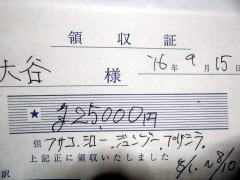 領収証
大谷 様 '16年9月15日
★ ¥25,000円
但 アサコ、シロー、ジュンゾー、アリシラ
上記正に領収いたしました 8/1.〜8/10
訳